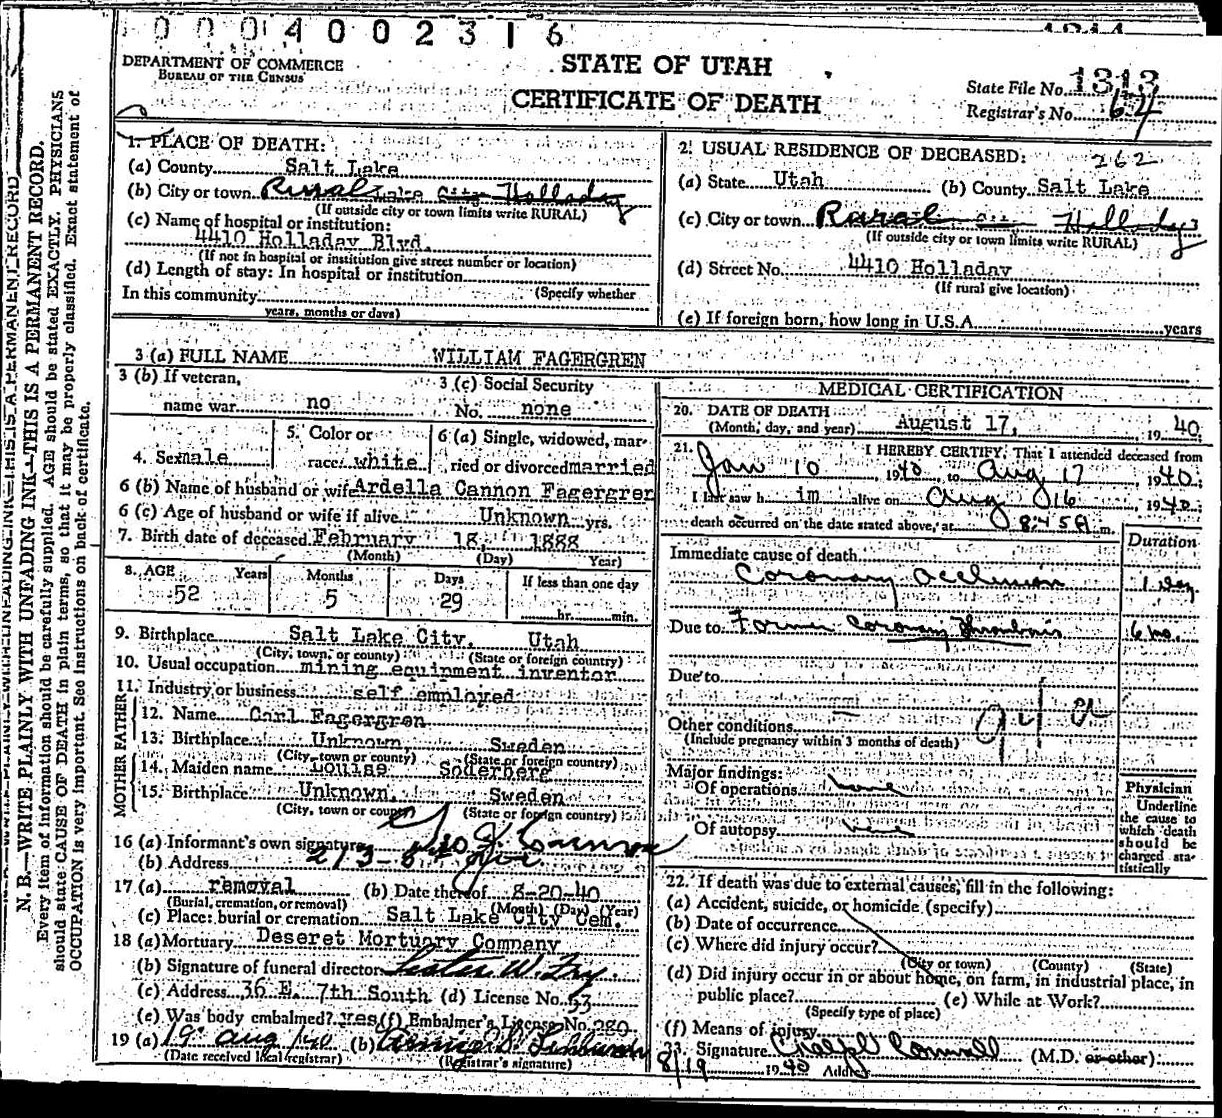 0 0 0 4 0 0 2 3 1 6
DEPARTMENT OF COMMERCE
BUREAU OF THE CENSUS
STATE OF UTAH
CERTIFICATE OF DEATH
State File No. 1313
Registrar's No. 64
1. PLACE OF DEATH:
(a) County Salt Lake
(b) City or town Rural Lake City Holladay
(If outside city or town limits write RURAL)
(c) Name of hospital or institution:
4410 Holladay Blvd.
(If not in hospital or institution give street number or location)
(d) Length of stay: In hospital or institution
(Specify whether
In this community
years, months or days)
2. USUAL RESIDENCE OF DECEASED: 262
(a) State Utah (b) County Salt Lake
(c) City or town Rural Holladay
(If outside city or town limits write RURAL)
(d) Street No. 4410 Holladay
(If rural give location)
(e) If foreign born, how long in U.S.A. years
3 (a) FULL NAME WILLIAM FAGERGREN
3 (b) If veteran,
name war no
3 (c) Social Security
No. none
4. Sex male
5. Color or
race white
6 (a) Single, widowed, mar-
ried or divorced married
6 (b) Name of husband or wife Ardella Cannon Fagergren
6 (c) Age of husband or wife if alive Unknown yrs.
7. Birth date of deceased February 18, 1888
(Month) (Day) Year)
8. AGE Years Months Days If less than one day
52 5 29 hr. min.
9. Birthplace Salt Lake City, Utah
(City, town, or county) (State or foreign country)
10. Usual occupation mining equipment inventor
11. Industry or business self employed
FATHER
12. Name Carl Fagergren
13. Birthplace Unknown Sweden
(City, town or county) (State or foreign country)
MOTHER
14. Maiden name Louise Soderberg
15. Birthplace Unknown, Sweden
(City, town or county) (State or foreign country)
16 (a) Informant's own signature Geo J. Cannon
(b) Address
17 (a) removal (b) Date thereof 8-20-40
(Burial, cremation, or removal) (Month) (Day) (Year)
(c) Place: burial or cremation Salt Lake City Cem.
18 (a) Mortuary Deseret Mortuary Company
(b) Signature of funeral director Lester W. Fry
(c) Address 36 E. 7th South (d) License No. 53
(e) Was body embalmed? yes (f) Embalmer's License No. 280
19 (a) 19 Aug/40 (b)
(Date received local registrar) (Registrar's signature)
MEDICAL CERTIFICATION
20. DATE OF DEATH
(Month, day, and year) August 17, 19 40
21. I HEREBY CERTIFY, That I attended deceased from
Jan 10 1940, to Aug 17 1940
I last saw h im alive on Aug 16 1940
death occurred on the date stated above, at 8:45A m.
Duration
Immediate cause of death
Coronary occlusion 1 day
Due to Former Coronary thrombosis 6 mo.
Due to
94 a
Other conditions
(Include pregnancy within 3 months of death)
Major findings:
Of operations none
Of autopsy none
Physician
Underline
the cause to
which death
should be
charged sta-
tistically
22. If death was due to external causes, fill in the following:
(a) Accident, suicide, or homicide (specify)
(b) Date of occurrence
(c) Where did injury occur?
(City or town) (County) (State)
(d) Did injury occur in or about home, on farm, in industrial place, in
public place? (e) While at Work?
(Specify type of place)
(f) Means of injury
23. Signature (M.D. or other)
8/19 1940 Address
N. B.—WRITE PLAINLY WITH UNFADING INK—THIS IS A PERMANENT RECORD.
Every item of information should be carefully supplied. AGE should be stated EXACTLY. PHYSICIANS
should state CAUSE OF DEATH in plain terms, so that it may be properly classified. Exact statement of
OCCUPATION is very important. See instructions on back of certificate.